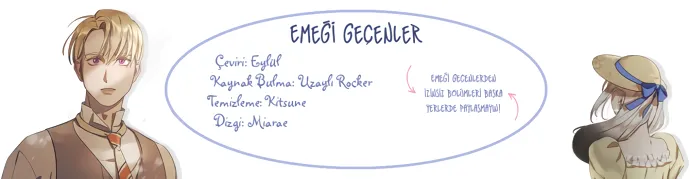 EMEĞİ GEÇENLER
Çeviri: Eylül
Kaynak Bulma: Uzaylı Rocker
Temizleme: Kitsune
Dizgi: Miarae
EMEĞİ GEÇENLERDEN
İZİNSİZ BÖLÜMLERİ BAŞKA
YERLERDE PAYLAŞMAYIN!